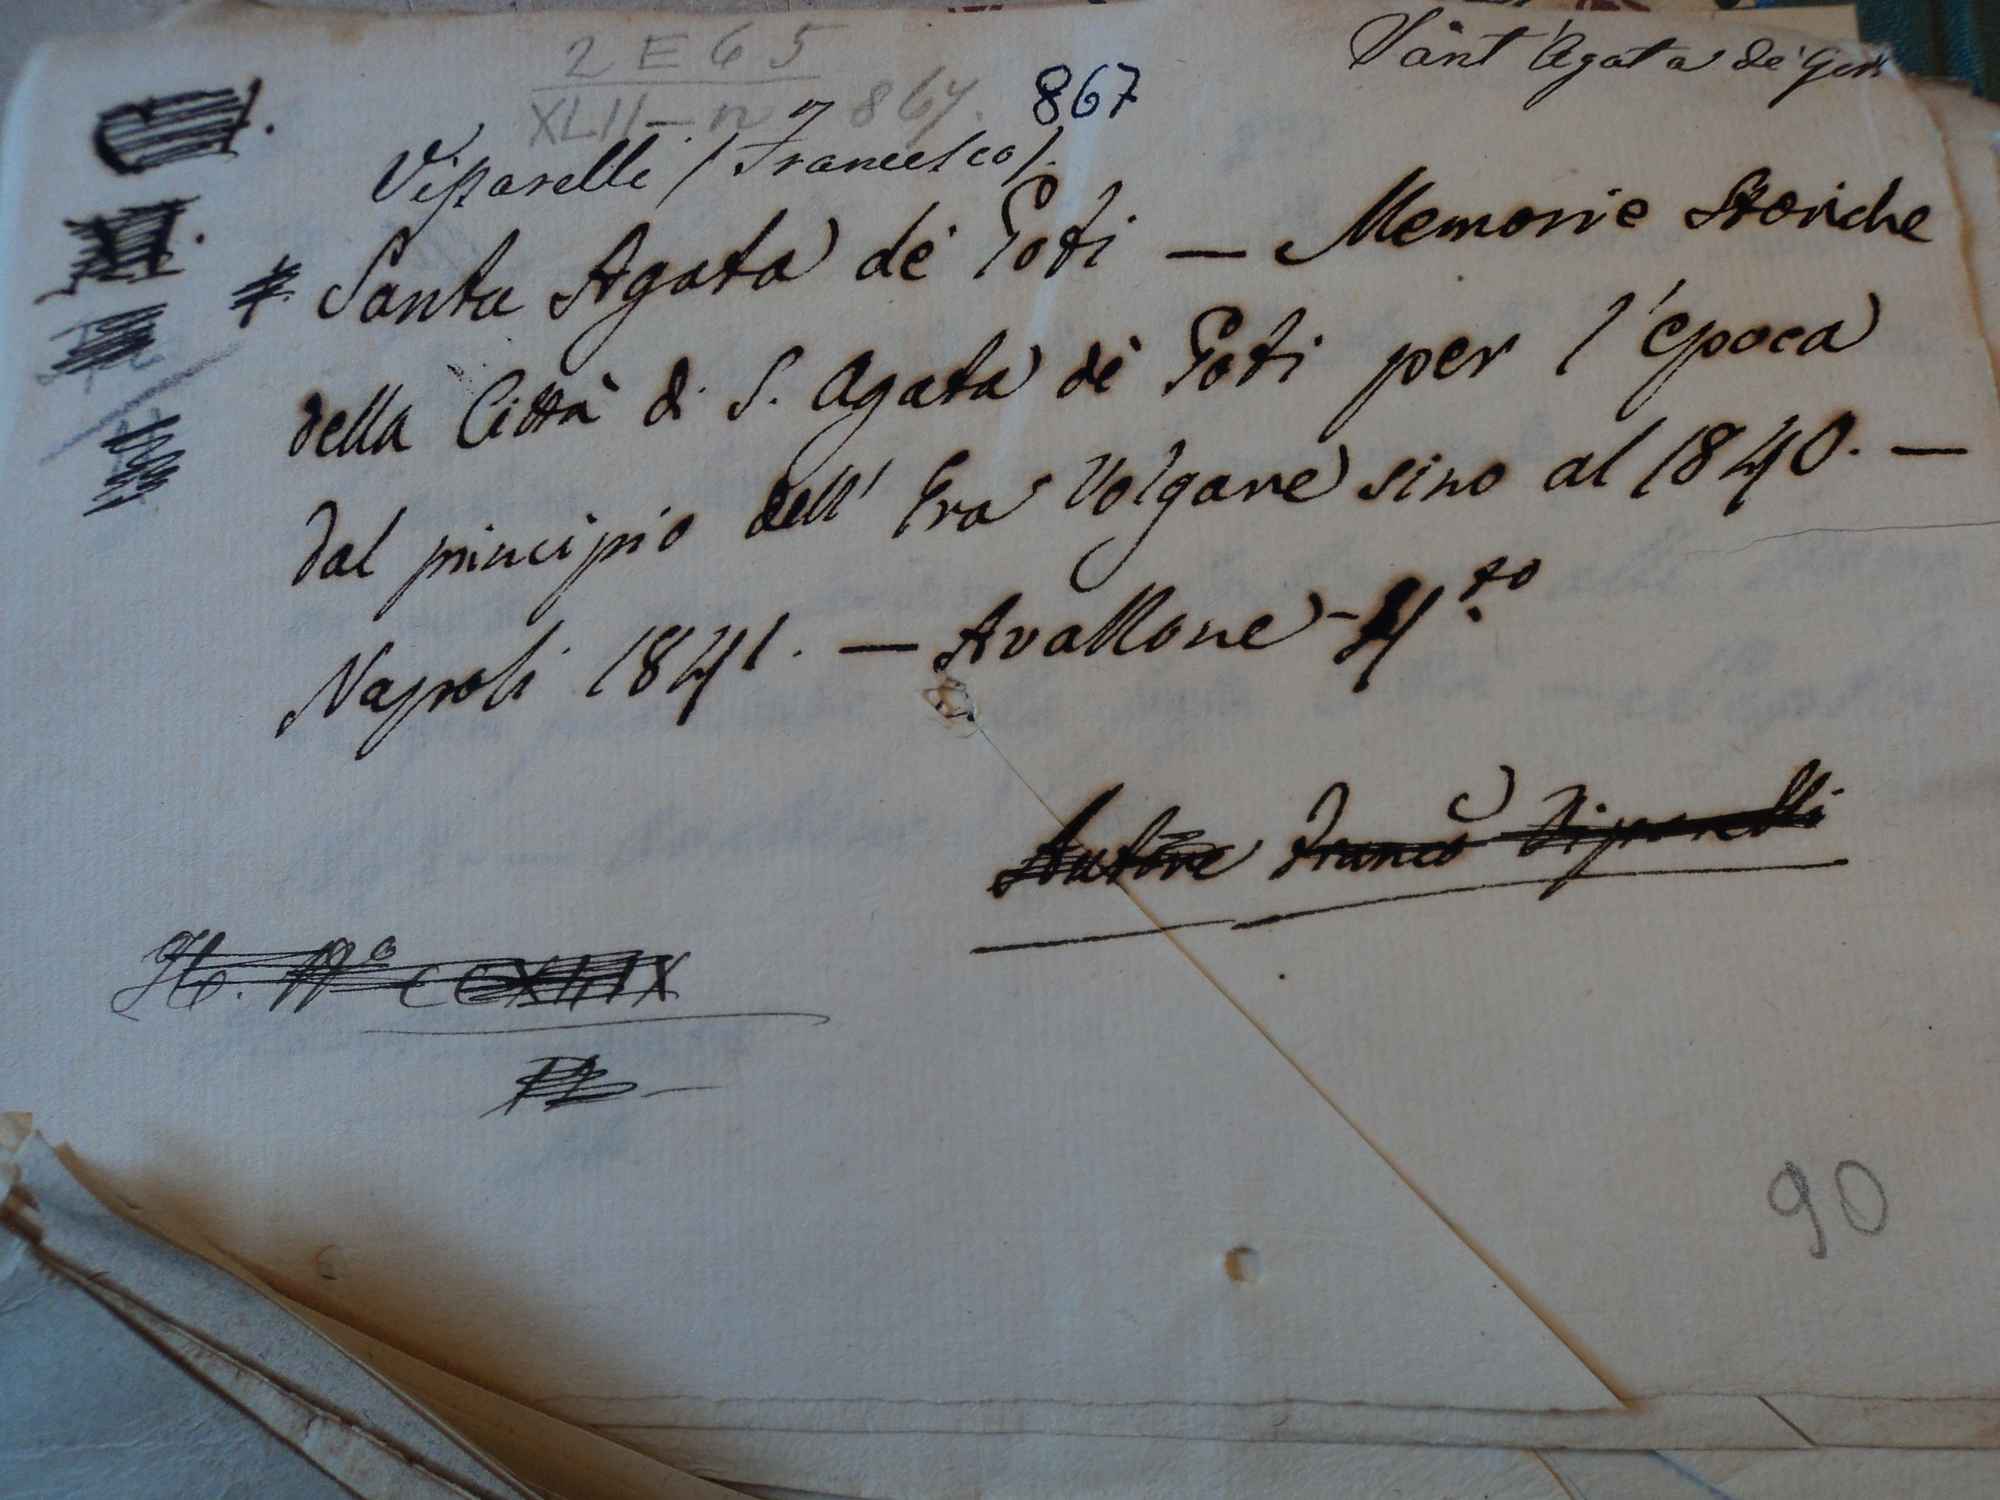 2 E 65
XLII - n° 867. 867
Sant'Agata de'
Viparelli (Francesco).
Santa Agata de' Goti — Memorie Storiche
della Città di S. Agata de' Goti per l'epoca
dal principio dell' Era Volgare sino al 1840. —
Napoli 1841. — Avallone - 4.to
Autore Franco Viparelli
N°
90